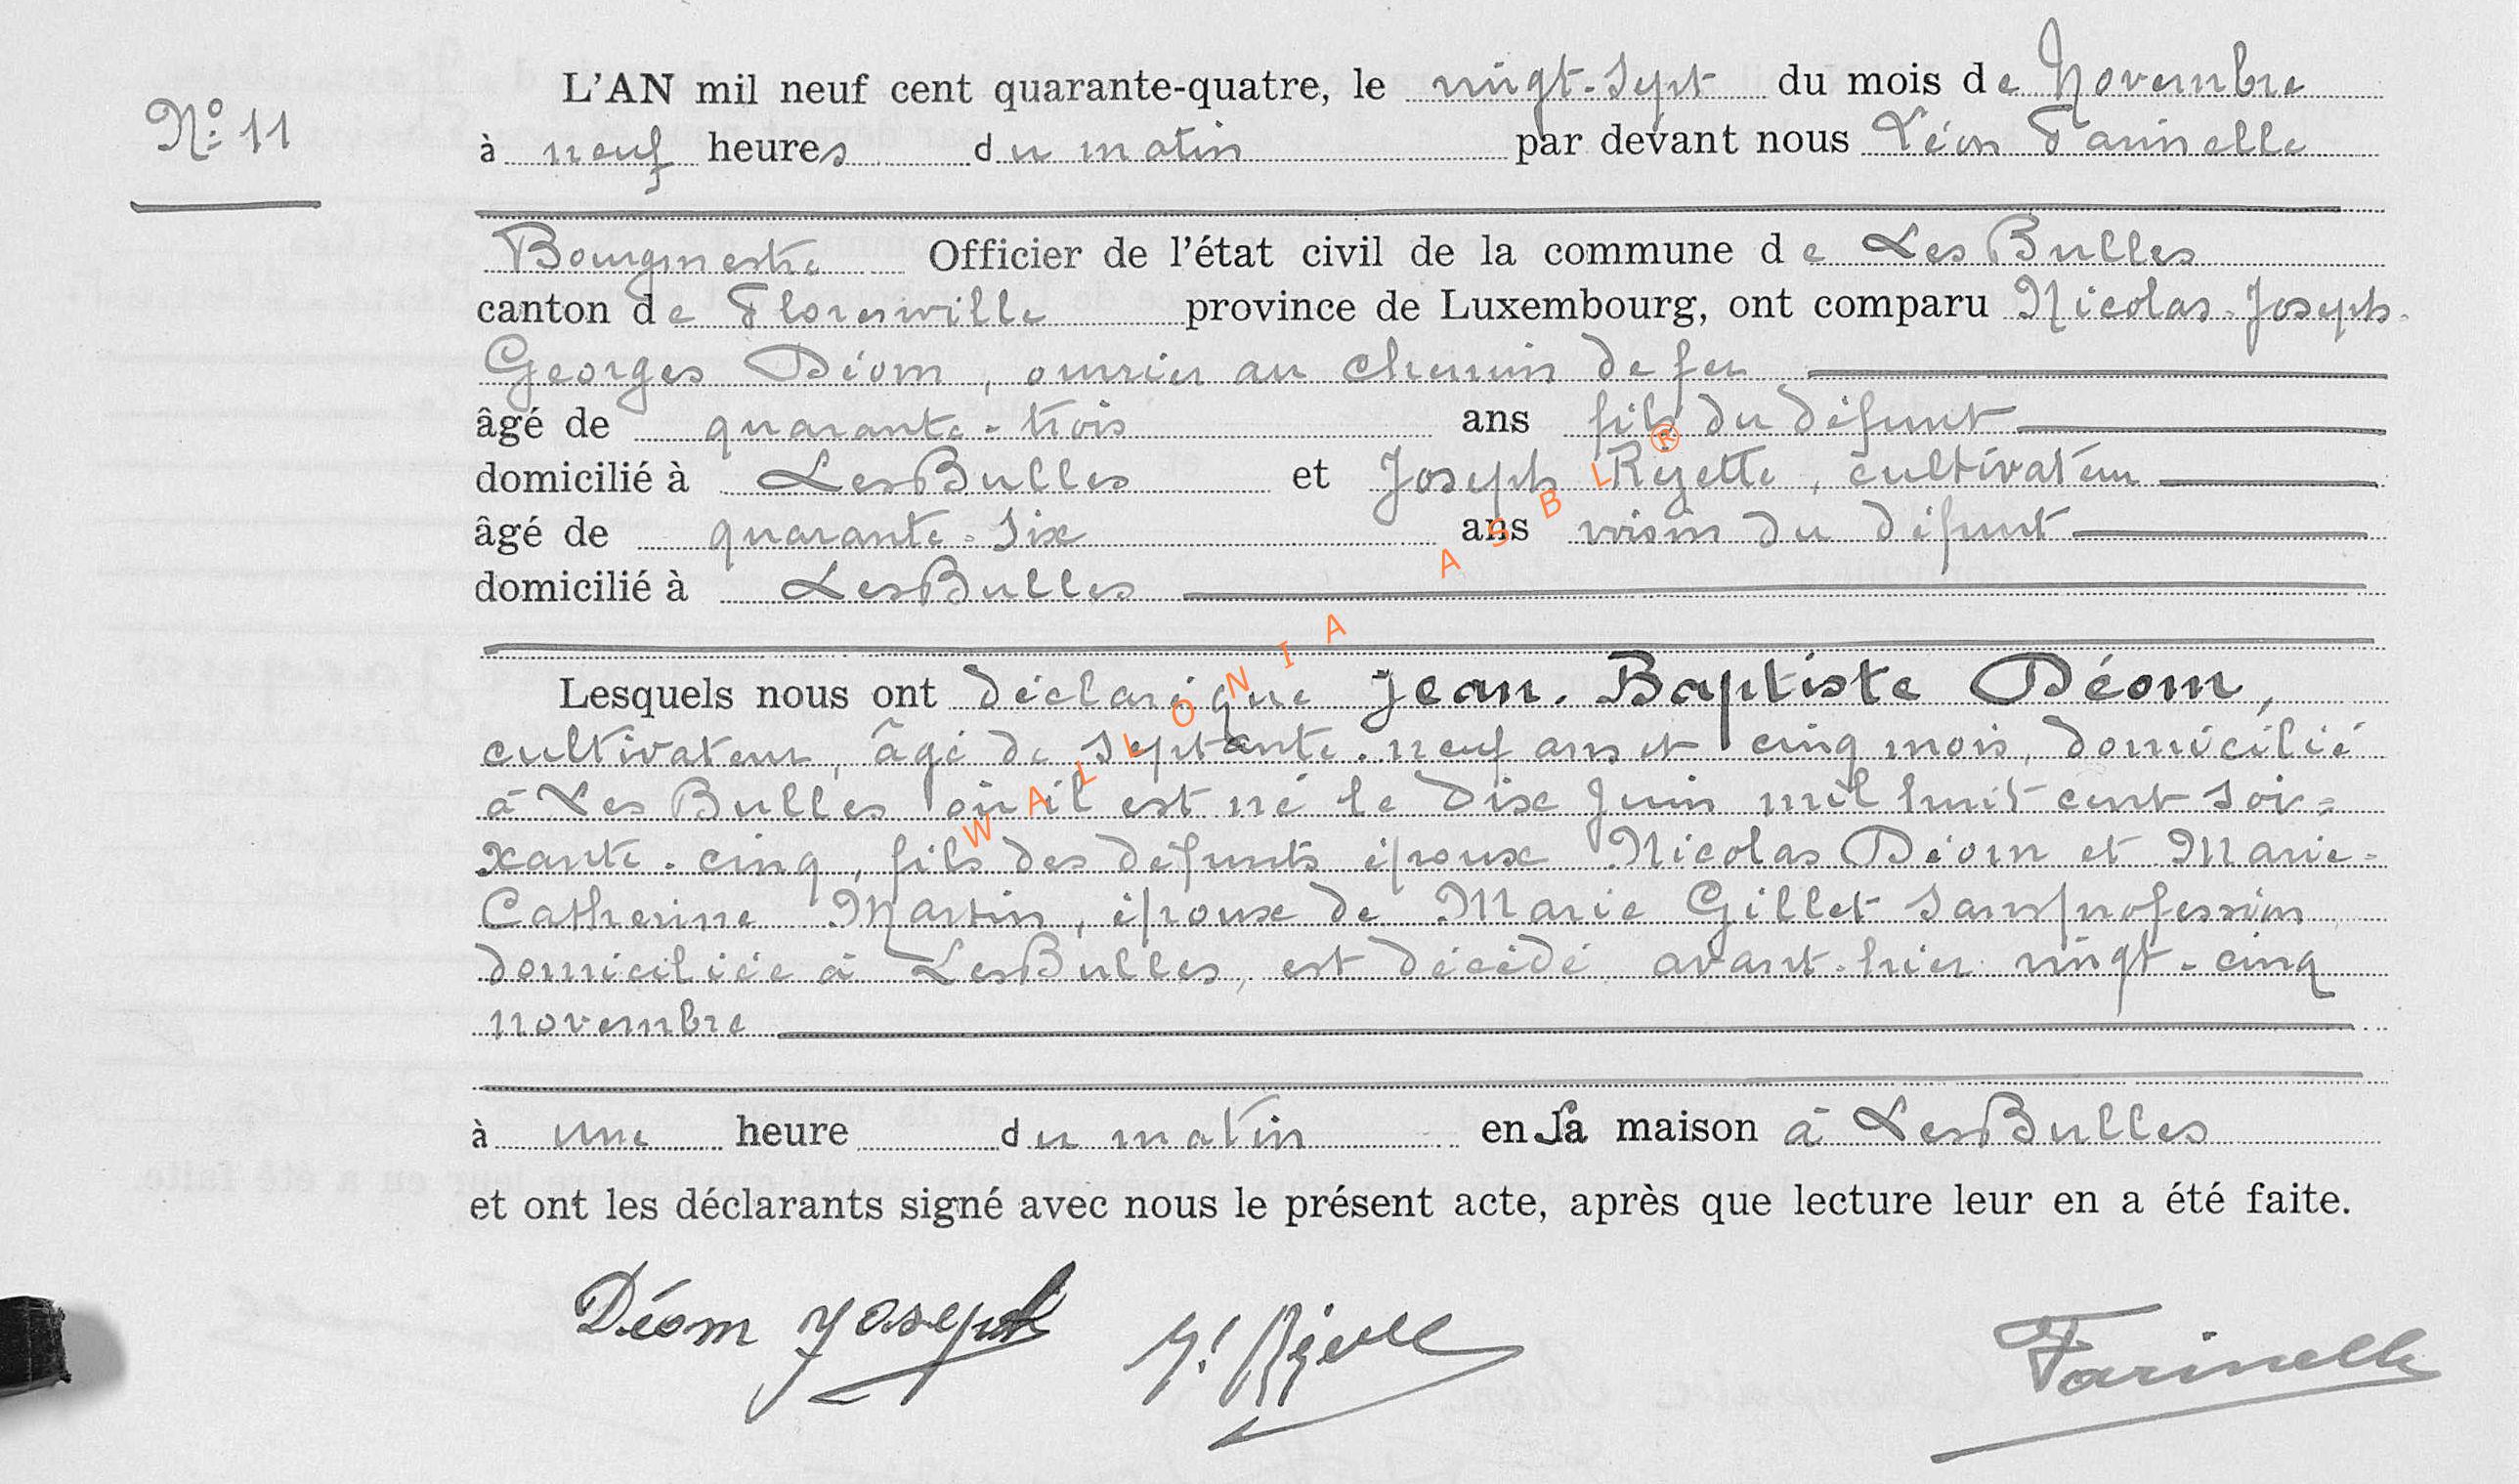 N° 11
L'AN mil neuf cent quarante-quatre, le vingt-sept du mois de Novembre
à neuf heures du matin par devant nous Léon Farinelle
Bourgmestre Officier de l'état civil de la commune de Les Bulles
canton de Florenville province de Luxembourg, ont comparu Nicolas-Joseph-
Georges Déom, ouvrier au chemin de fer
âgé de quarante-trois ans fils du défunt
domicilié à Les Bulles et Joseph Rézette, cultivateur
âgé de quarante-six ans voisin du défunt
domicilié à Les Bulles
Lesquels nous ont déclaré que Jean-Baptiste Déom,
cultivateur, âgé de septante-neuf ans et cinq mois, domicilié
à Les Bulles où il est né le dix Juin mil huit cent soi-
xante-cinq, fils des défunts époux Nicolas Déom et Marie-
Catherine Martin, époux de Marie Gillet sans profession
domiciliée à Les Bulles, est décédé avant-hier vingt-cinq
novembre
à une heure du matin en sa maison à Les Bulles
et ont les déclarants signé avec nous le présent acte, après que lecture leur en a été faite.
Déom Joseph Farinelle
WALLONIA ASBL ®